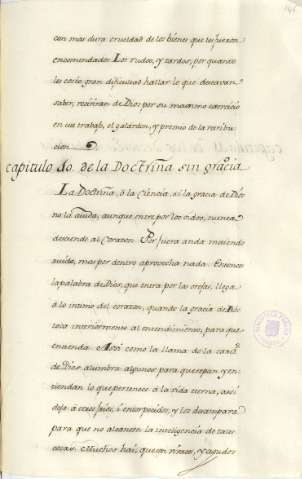 con mas dura crueldad de los bienes que les fueron
encomendados. Los rudos, y tardos, por quanto
les costó gran dificultad hallar lo que deseavan
saber, recibiran de Dios por su mayor exercicio
en su trabajo, el galardon, y premio de la retribu
cion.
capitulo 10. de la Doctrina sin gracia
La Doctrina, ó la Ciencia, si la gracia de Dios
no la aiuda, aunque entre por los oidos, nunca
deciende al Corazon. Por fuera anda metiendo
ruido, mas por dentro aprovecha nada. Entonces
la palabra de Dios, que entra por la orejas, llega
á lo intimo del corazon, quando la gracia de Dios
toca interiormente al entendimiento, para que
entienda. Assi como la llama de la caridad
de Dios alumbra algunos para que sepan, y en
tiendan lo que pertenece á la vida eterna, assi
deja á otros frios, i entorpecidos, y les desampara
para que no alcancen la inteligencia de tales
cosas. Muchos hai, que son vivos, y agudos